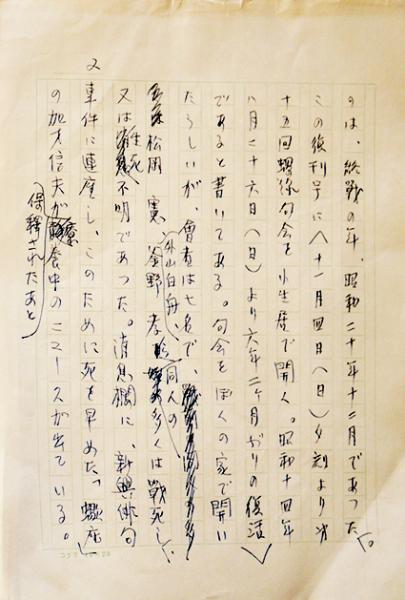 のは、終戦の年、昭和二十年十二月であった。
この復刊号に〈十一月四日(日)夕刻より才
十五回句会を小生居で開く。昭和十四年
八月二十六日(日)より六年二ヶ月ぶりの復活〉
であると書いてある。句会をぼくの家で開い
たらしいが、會者は七名で、
松岡 実、釜野 孝
外山白舟、
同人の多くは戦死し、
又は生死不明であった。消息欄に、新興俳句
事件に連座し、このために死を早めた
の加才信夫が療養中のニュースが出ている。
保釈されたあと
コクヨ